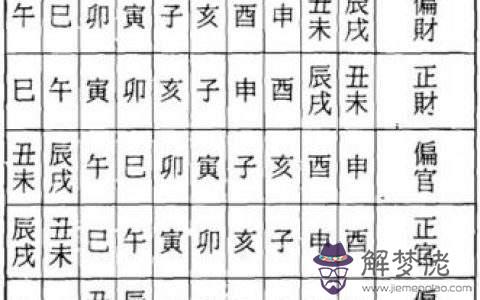 午 巳 卯 寅 子 亥 酉 申 丑未 辰戌 偏財
巳 午 寅 卯 亥 子 申 酉 辰戌 丑未 正財
丑未 辰戌 午 巳 卯 寅 子 亥 酉 申 偏官
辰戌 丑未 巳 午 寅 卯 亥 子 申 酉 正官
丑 辰 偏
解梦佬
https://www.jiemenglao.com/